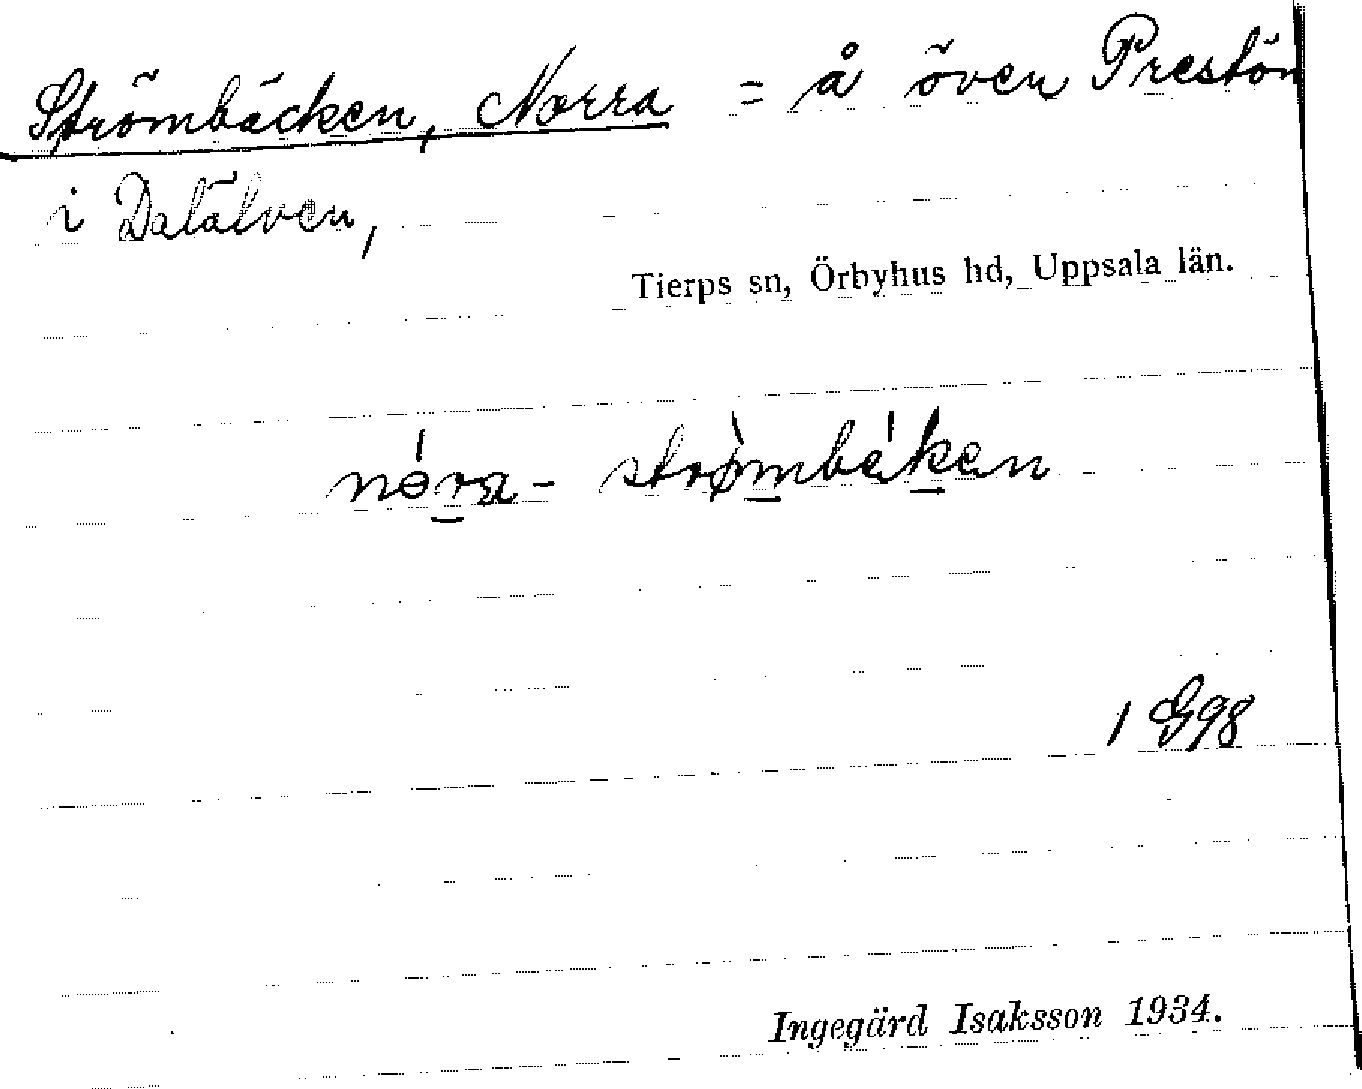 Strömbäcken, Norra = å över Prestön
i Dalälven,
Tierps sn, Örbyhus hd, Uppsala län.
1 G98
Ingegärd Isaksson 1934.